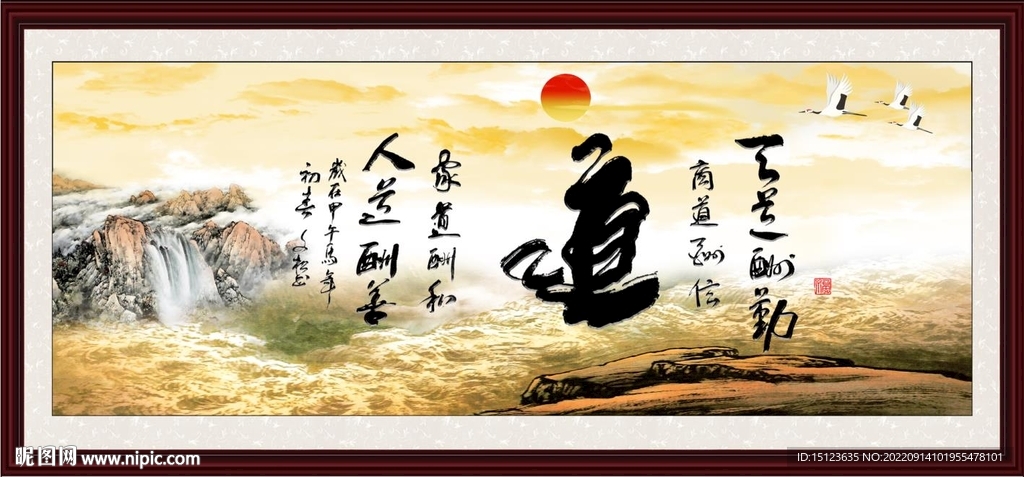 天道酬勤
商道酬信
道
家道酬和
人道酬善
岁在甲午马年
初春
昵图网 www.nipic.com
ID:15123635 NO:20220914101955478101